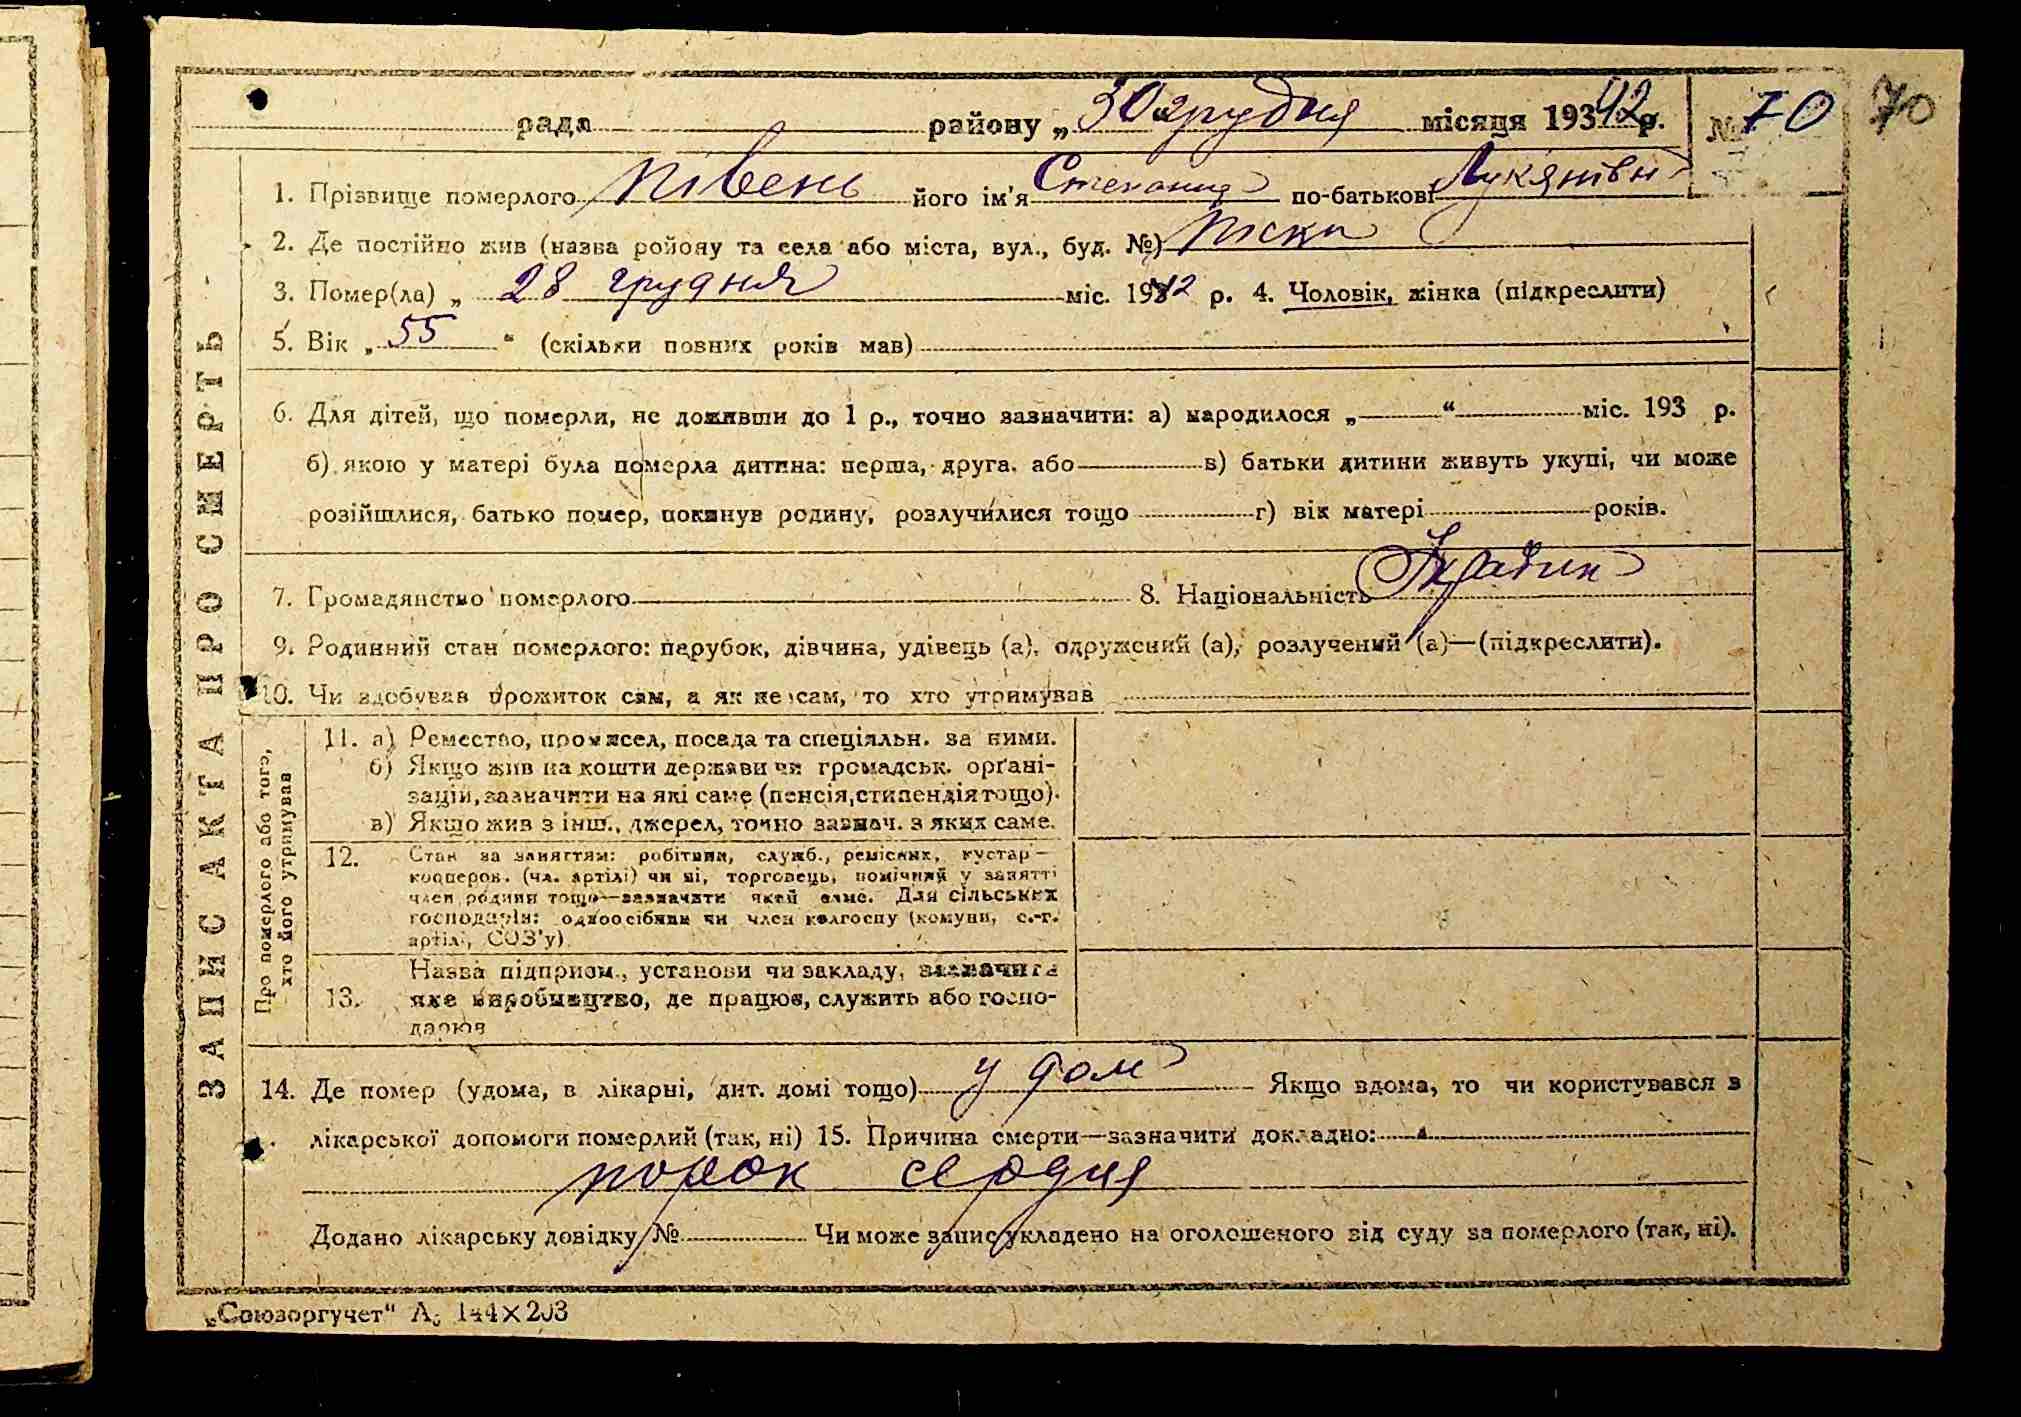 рада району „30“ грудня місяця 19342 р. № 70 70
1. Прізвище померлого Півень його ім'я Степанида по-батькові Лукянівн
2. Де постійно жив (назва ройону та села або міста, вул., буд. №) Піски
3. Помер(ла) „ 28 грудня міс. 1942 р. 4. Чоловік, жінка (підкреслити)
5. Вік „ 55 “ (скільки повних років мав)
6. Для дітей, що померли, не доживши до 1 р., точно зазначити: а) народилося „ “ міс. 193 р.
б) якою у матері була померла дитина: перша, друга, або в) батьки дитини живуть укупі, чи може
розійшлися, батько помер, покинув родину, розлучилися тощо г) вік матері років.
7. Громадянство померлого 8. Національність Українк
9. Родинний стан померлого: парубок, дівчина, удівець (а), одружений (а), розлучений (а)—(підкреслити).
10. Чи здобував прожиток сам, а як не сам, то хто утримував
ЗАПИС АКТА ПРО СМЕРТЬ
Про померлого або того,
хто його утримував
11. а) Ремество, промисел, посада та спеціяльн. за ними.
б) Якщо жив на кошти держави чи громадськ. орґані-
зацій, зазначити на які саме (пенсія, стипендія тощо).
в) Якщо жив з інш., джерел, точно зазнач. з яких саме.
12. Стан за заняттям: робітник, служб., ремісник, кустар—
кооперов. (чл. артілі) чи ні, торговець, помічний у занятті
член родини тощо—зазначити який саме. Для сільських
господарів: одноосібник чи член колгоспу (комуни, с.-г.
артілі, СОЗ'у)
Назва підприєм., установи чи закладу, зазначити
13. яке виробництво, де працює, служить або госпо-
дарює
14. Де помер (удома, в лікарні, дит. домі тощо) у дом Якщо вдома, то чи користувався з
лікарської допомоги померлий (так, ні) 15. Причина смерти—зазначити докладно:
порок сердця
Додано лікарську довідку № Чи може запис укладено на оголошеного від суду за померлого (так, ні).
„Союзоргучет“ А5 144×203